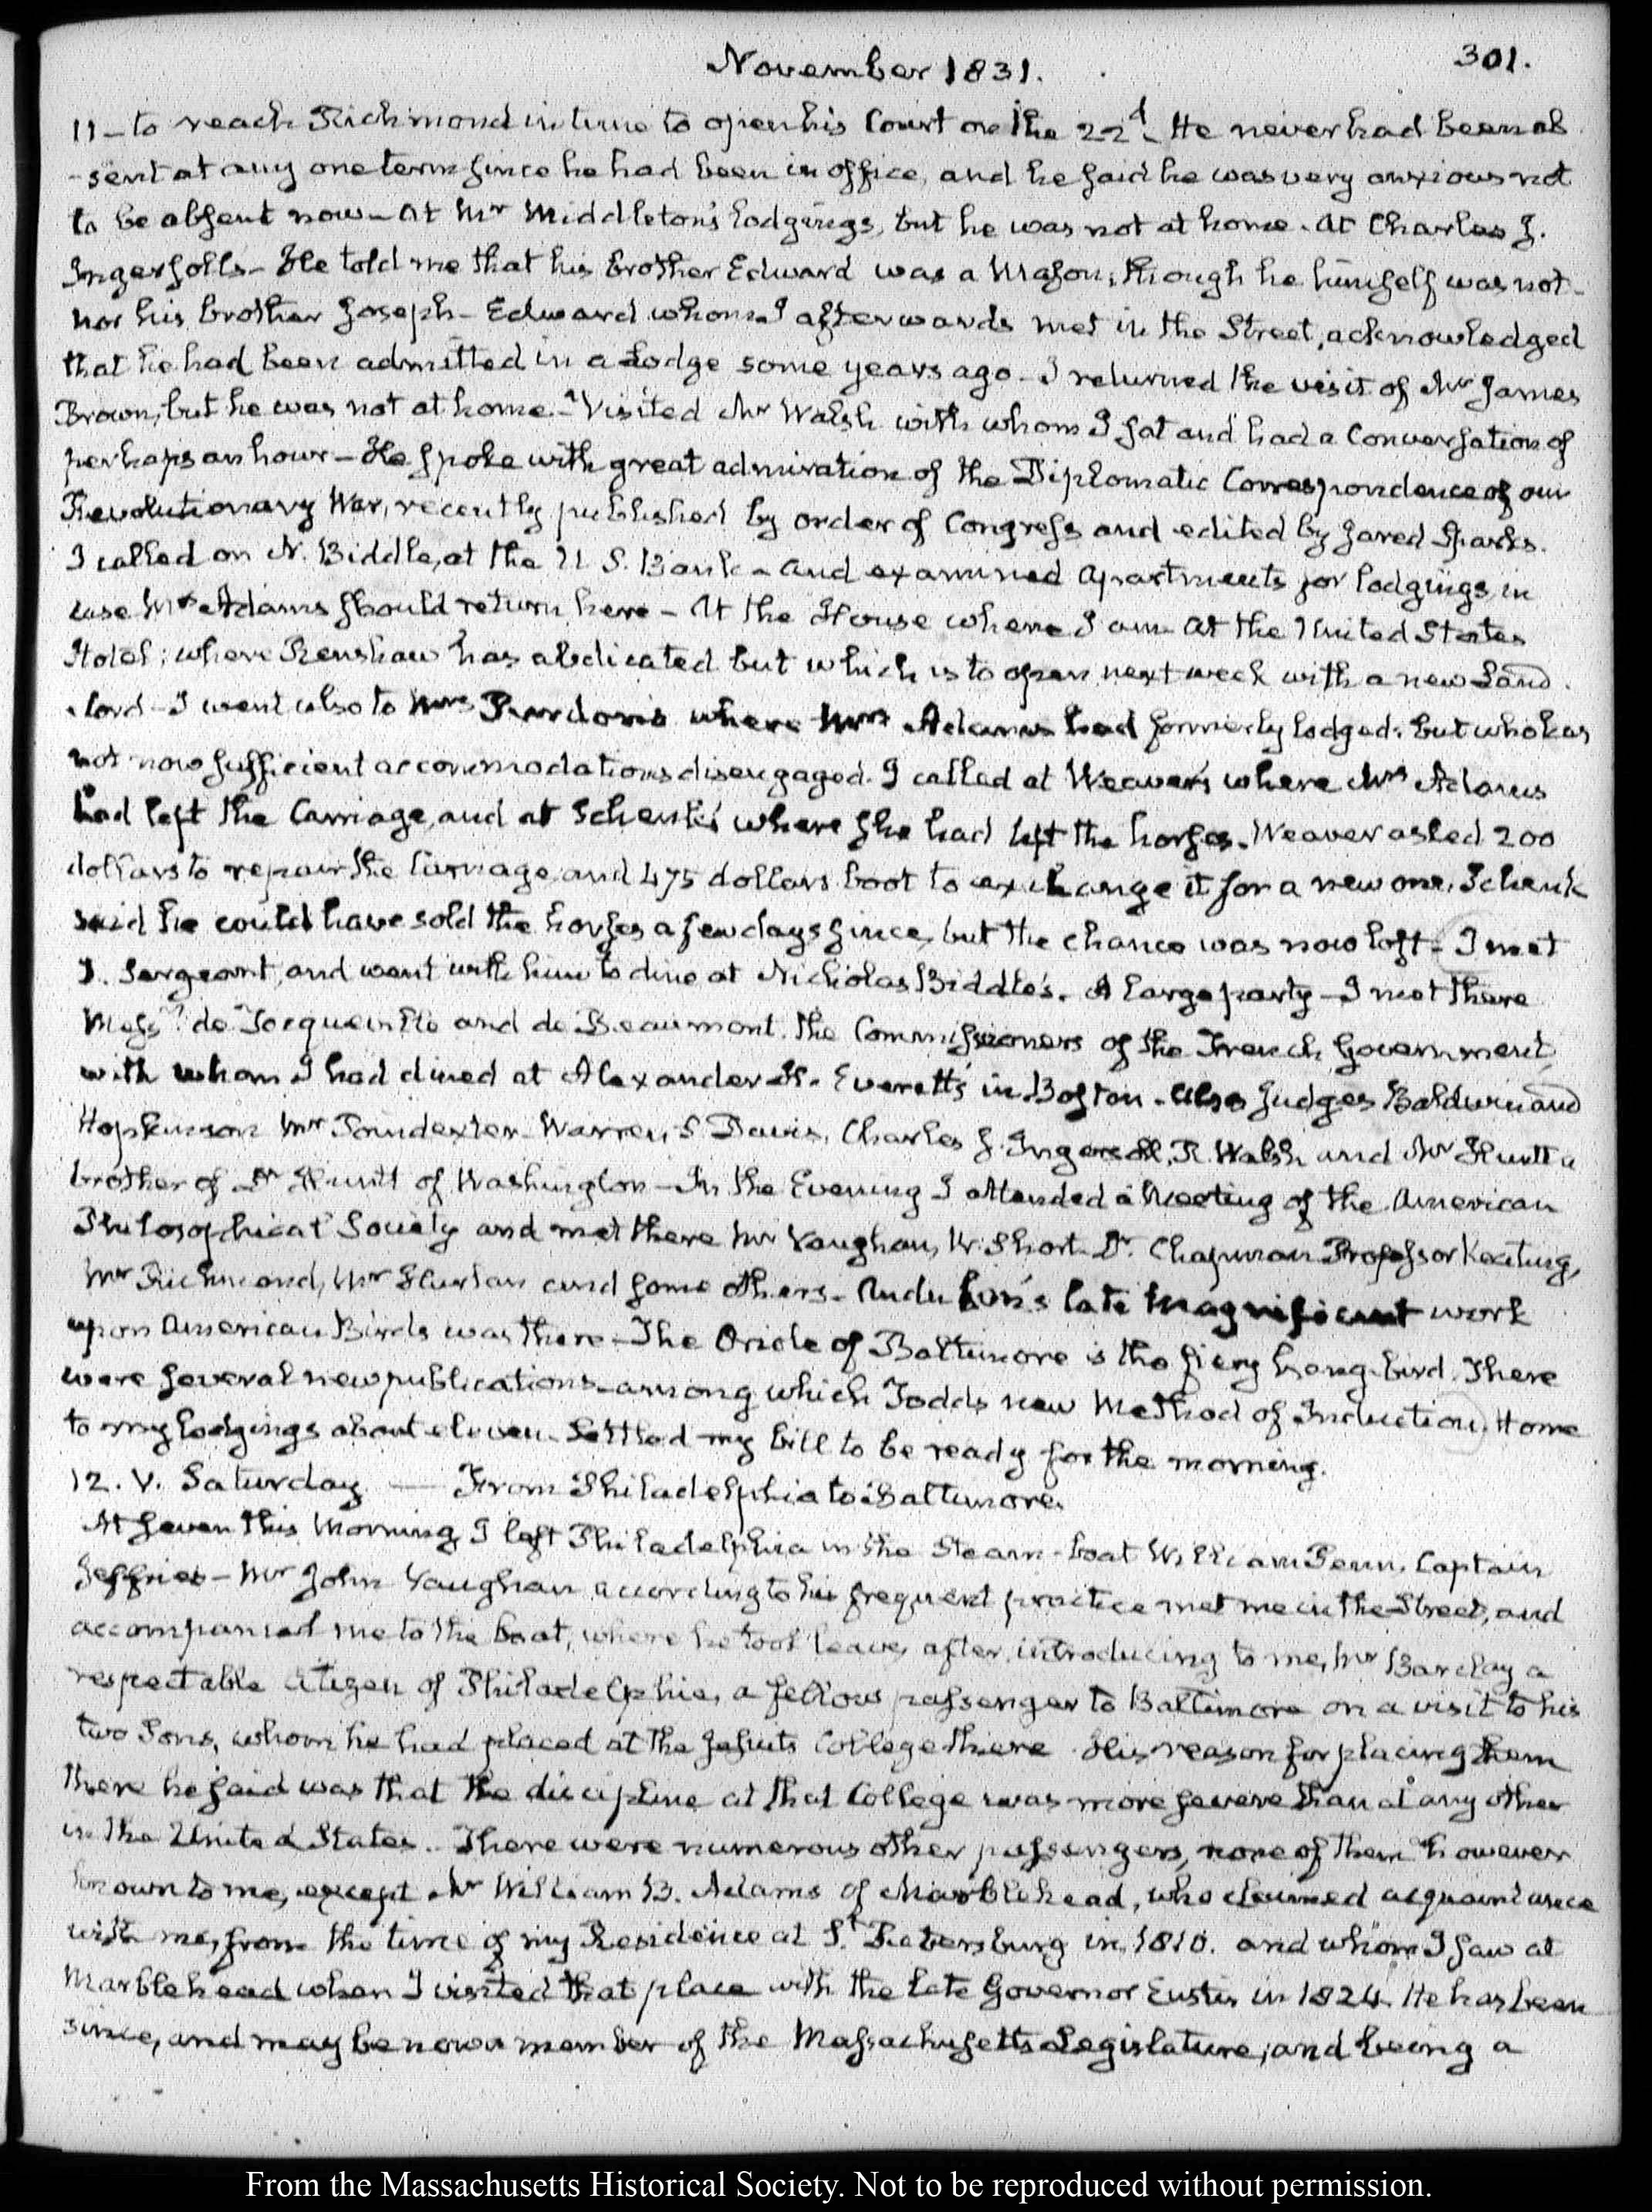 November 1831.
301.
11 - to reach Richmond in time to open his Court on the 22d. He never had been ab
-sent at any one term since he had been in office, and he said he was very anxious not
to be absent now - At Mr Middleton's lodgings, but he was not at home. At Charles J.
Ingersoll's - He told me that his brother Edward was a Mason; though he himself was not -
nor his brother Joseph - Edward whom I afterwards met in the Street, acknowledged
that he had been admitted in a Lodge some years ago - I returned the visit of Mr James
Brown, but he was not at home. - Visited Mr Walsh with whom I sat and had a Conversation of
perhaps an hour - He spoke with great admiration of the Diplomatic Correspondence of our
Revolutionary War, recently published by order of Congress and edited by Jared Sparks.
I called on N. Biddle, at the U. S. Bank - and examined apartments for lodgings, in
case Mrs Adams should return here - At the House where I am At the United States
Hotel; where Renshaw has abdicated but which is to open next week with a new Land
lord - I went also to Mrs Purdon's where Mrs Adams had formerly lodged: but who has
not now sufficient accommodations disengaged. I called at Weaver's where Mrs Adams
had left the Carriage, and at Schenk's where she had left the horses. Weaver asked 200
dollars to repair the Carriage, and 475 dollars boot to exchange it for a new one. Schenk
said he could have sold the horses a few days since, but the chance was now lost - I met
J. Sergeant, and went with him to dine at Nicholas Biddle's. A large party - I met there
Messrs. de Tocqueville and de Beaumont. the Commissioners of the French Government,
with whom I had dined at Alexander H. Everett's in Boston. Also Judges Baldwin and
Hopkinson Mr Poindexter - Warren, S. Davis, Charles J. Ingersoll, R. Walsh and Mr Huntt a
brother of Dr Huntt of Washington - In the Evening I attended a Meeting of the American
Philosophical Society and met there Mr Vaughan, W. Short - Dr. Chapman Professor Keating,
Mr Richmond, Mr Harlan and some others - Audubon's late magnificent work
upon American Birds was there - The Oriole of Baltimore is the fiery hang-bird. There
were several new publications - among which Todd's new Method of Induction. Home
to my lodgings about eleven. Settled my bill to be ready for the morning.
12. V. Saturday — From Philadelphia to Baltimore.
At seven this Morning, I left Philadelphia in the Steam-boat William Penn, Captain
Jeffries - Mr John Vaughan according to his frequent practice met me in the Street, and
accompanied me to the boat, where he took leave, after introducing to me, Mr Barclay a
respectable Citizen of Philadelphia, a fellow passenger to Baltimore on a visit to his
two Sons, whom he had placed at the Jesuits College there. His reason for placing them
there he said was that the discipline at that College was more severe than at any other
in the United States. There were numerous other passengers, none of them however
known to me, except Mr William B. Adams of Marblehead, who claimed acquaintance
with me, from the time of my Residence at St. Petersburg in 1810. and whom I saw at
Marblehead when I visited that place with the late Governor Eustis in 1824. He has been
since, and may be now a member of the Massachusetts Legislature; and being a
From the Massachusetts Historical Society. Not to be reproduced without permission.